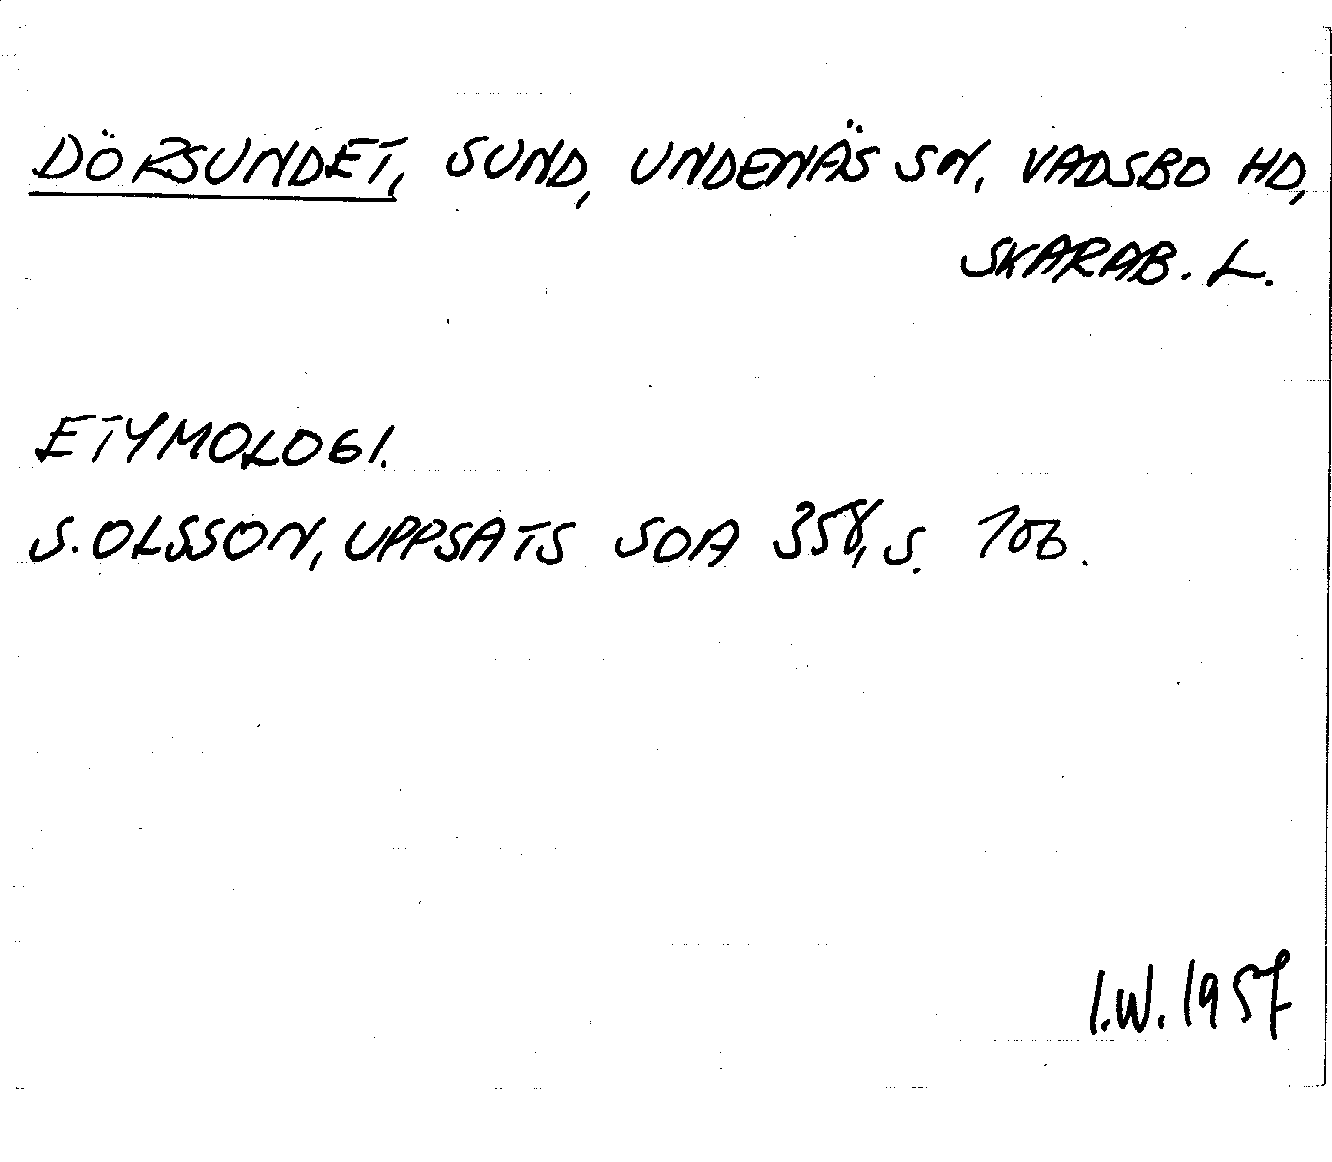 DÖRSUNDET, SUND, UNDENÄS SN, VADSBO HD,
SKARAB. L.
ETYMOLOGI.
S. OLSSON, UPPSATS SOA 358, S. 106.
I.W. 1957